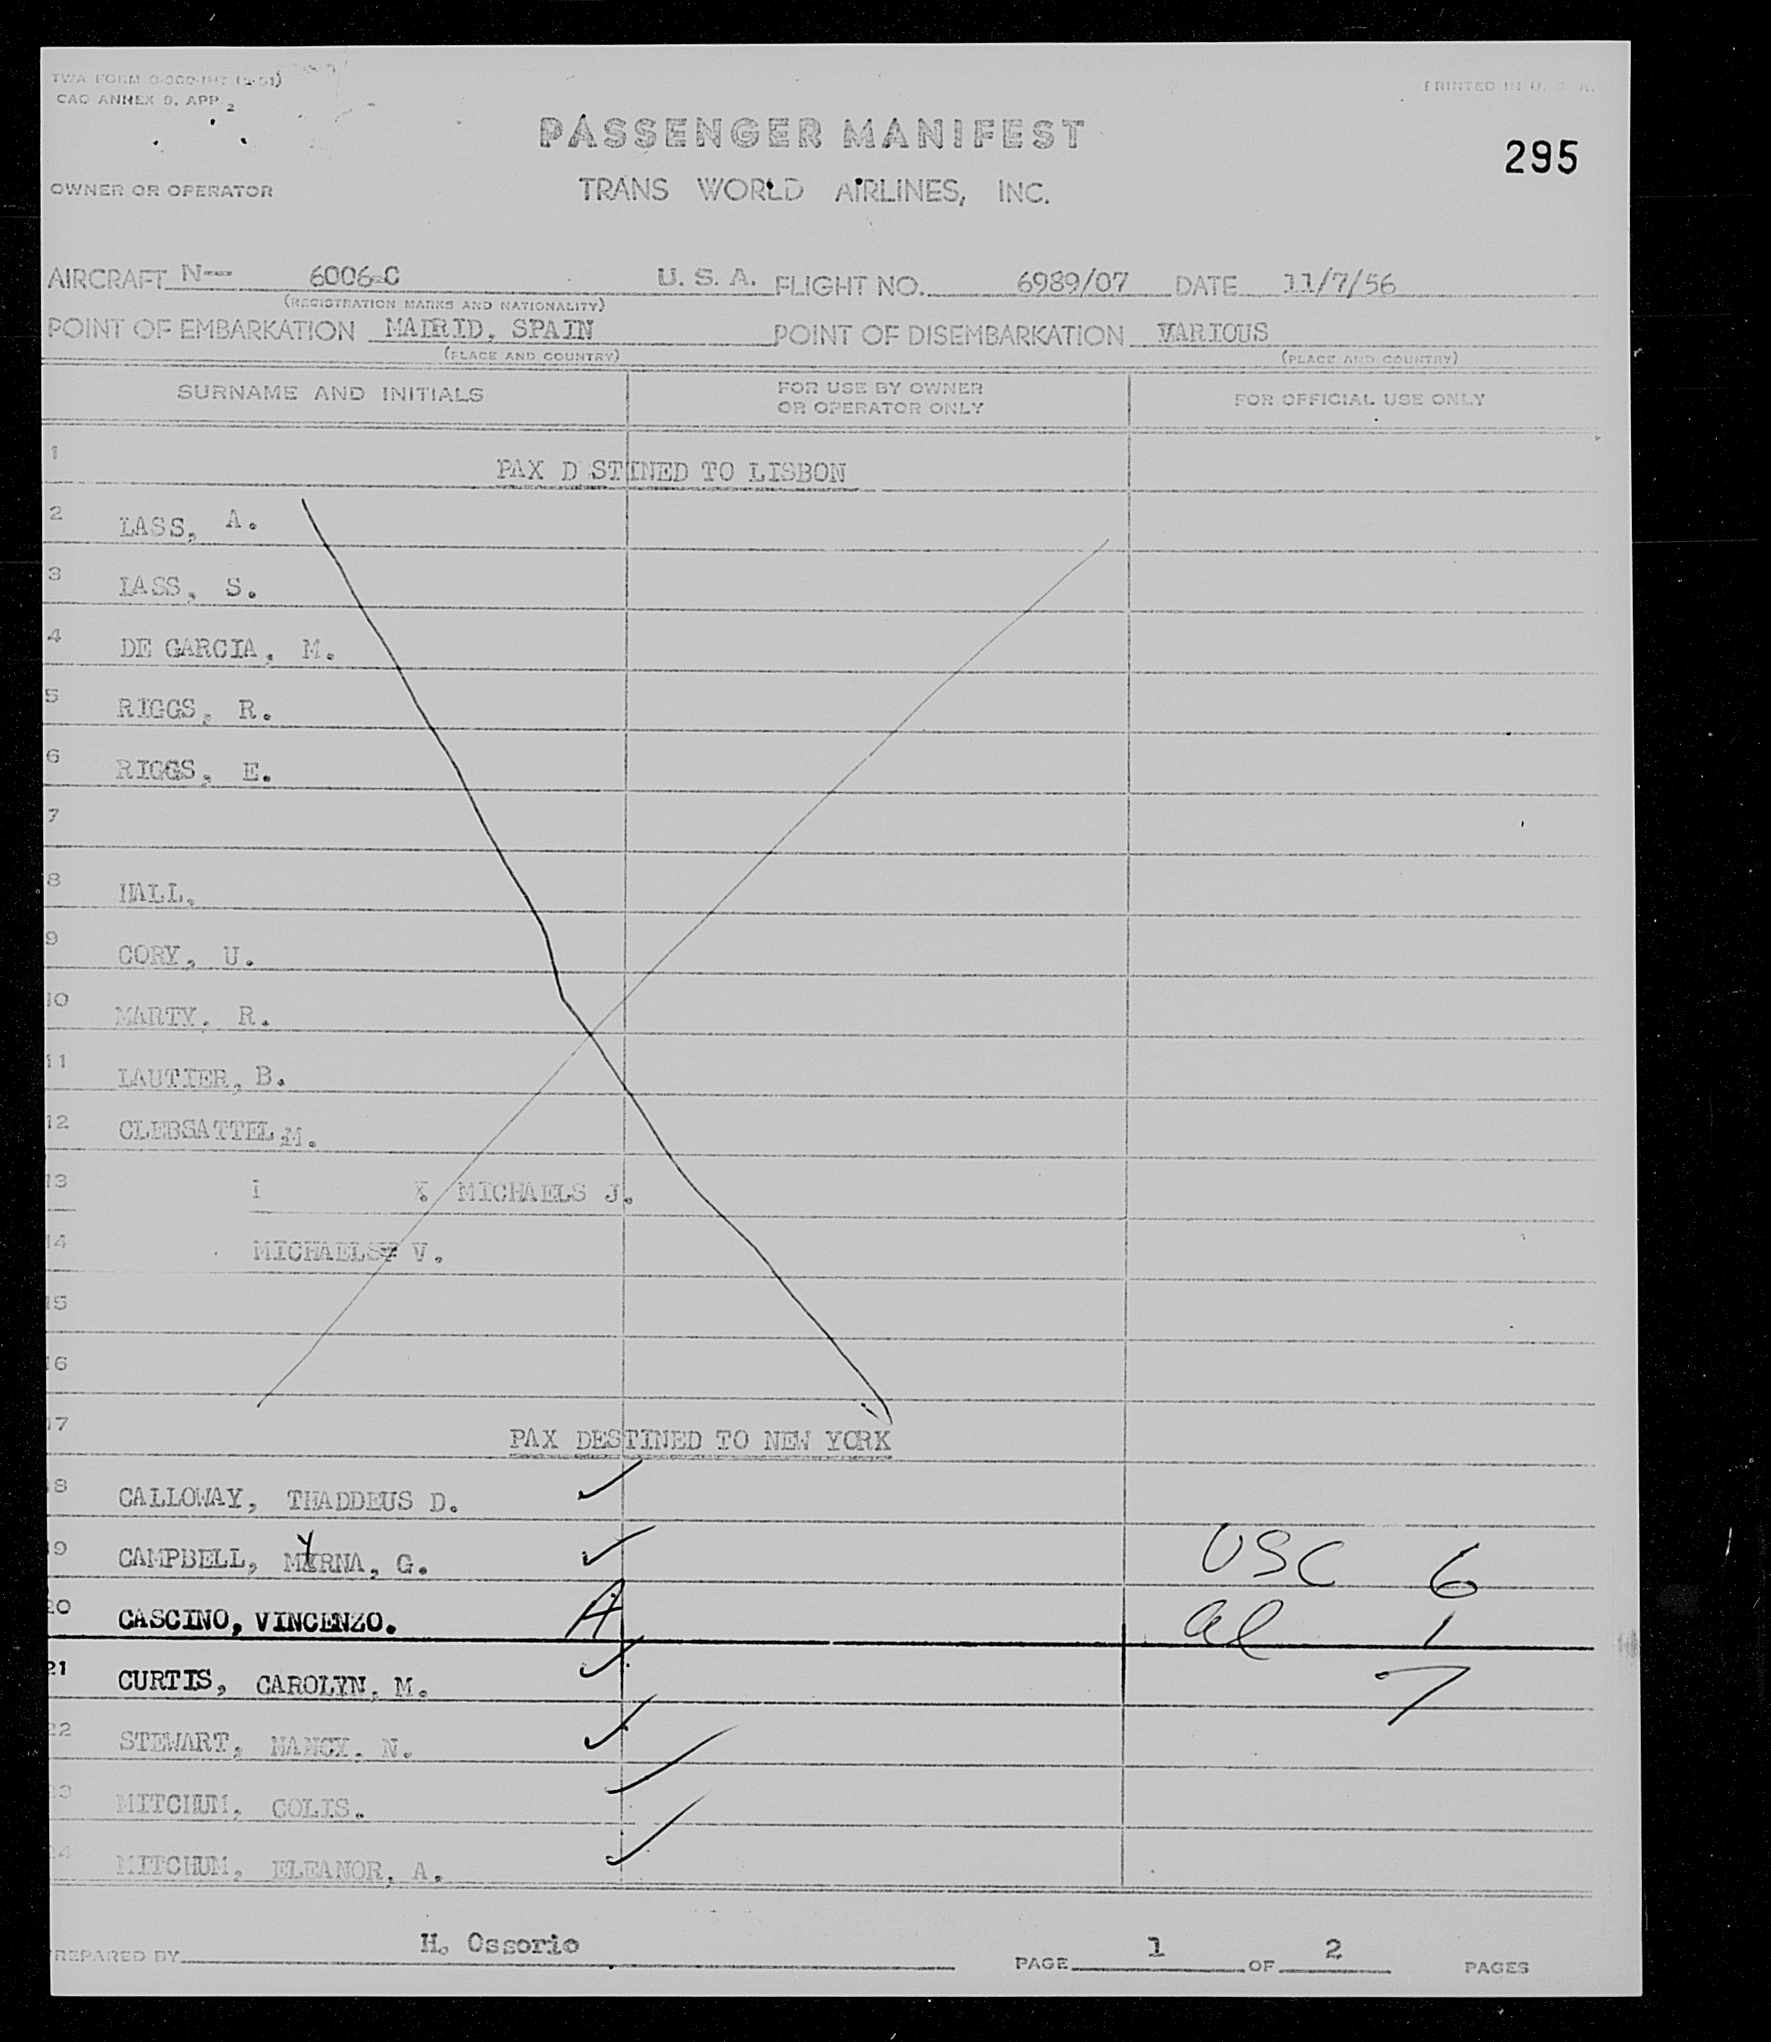 TWA FORM
CAO ANNEX 9, APP. 2
PRINTED IN U. S. A.
PASSENGER MANIFEST
295
OWNER OR OPERATOR
TRANS WORLD AIRLINES, INC.
AIRCRAFT N-- 6006-C U. S. A. FLIGHT NO. 6989/07 DATE 11/7/56
(REGISTRATION MARKS AND NATIONALITY)
POINT OF EMBARKATION MADRID, SPAIN POINT OF DISEMBARKATION VARIOUS
(PLACE AND COUNTRY) (PLACE AND COUNTRY)
SURNAME AND INITIALS FOR USE BY OWNER OR OPERATOR ONLY FOR OFFICIAL USE ONLY
1 PAX D STINED TO LISBON
2 LASS, A.
3 LASS, S.
4 DE GARCIA, M.
5 RIGGS, R.
6 RIGGS, E.
7
8 HALL,
9 CORY, U.
10 MARTY, R.
11 LAUTIER, B.
12 CLEBSATTEL, M.
13 MICHAELS J.
14 MICHAELS, V.
15
16
17 PAX DESTINED TO NEW YORK
18 CALLOWAY, THADDEUS D. ✓
19 CAMPBELL, MYRNA, G. ✓ USC 6
20 CASCINO, VINCENZO. A al 1
21 CURTIS, CAROLYN, M. ✓ 7
22 STEWART, NANCY, N. ✓
23 MITCHUM, COLIS. ✓
24 MITCHUM, ELEANOR, A. ✓
PREPARED BY H. Ossorio PAGE 1 OF 2 PAGES